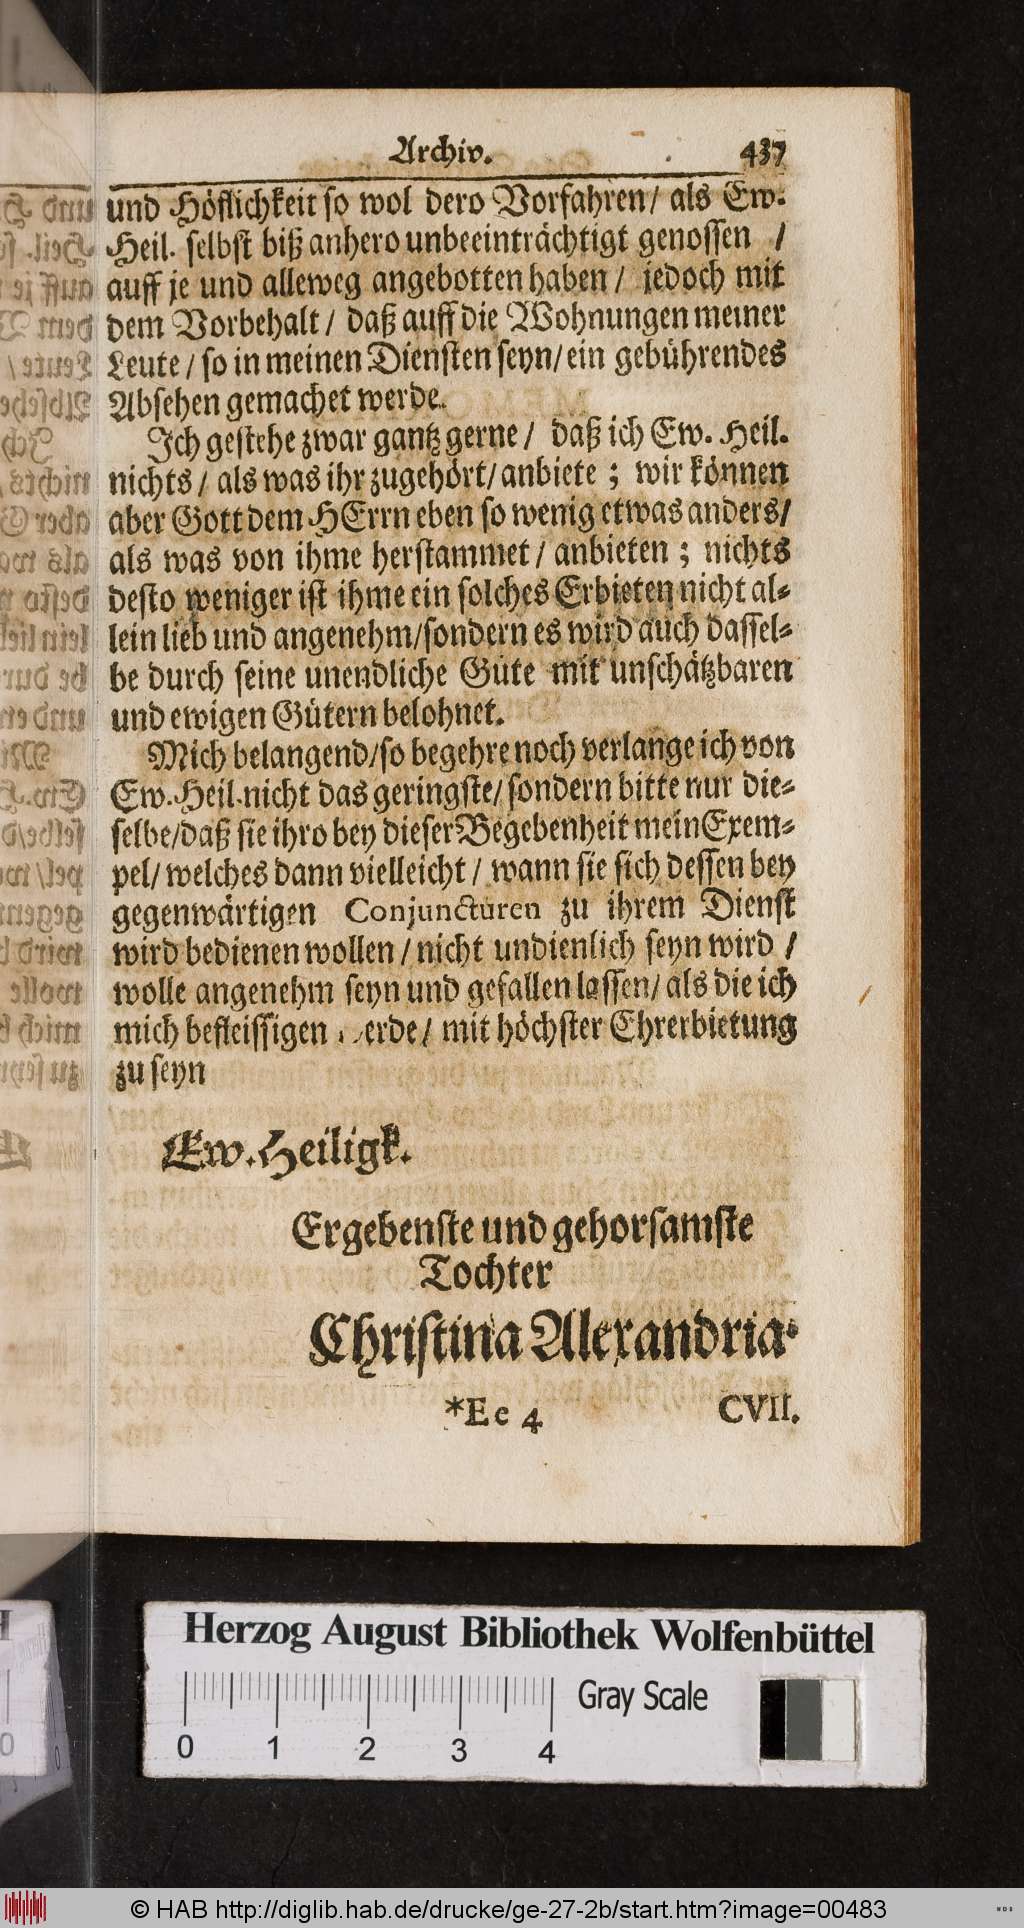 Archiv. 437
und Höflichkeit so wol dero Vorfahren / als Ew.
Heil. selbst biß anhero unbeeinträchtigt genossen /
auff je und alleweg angebotten haben / jedoch mit
dem Vorbehalt / daß auff die Wohnungen meiner
Leute / so in meinen Diensten seyn / ein gebührendes
Absehen gemachet werde.
Ich gestehe zwar gantz gerne / daß ich Ew. Heil.
nichts / als was ihr zugehört / anbiete ; wir können
aber Gott dem HErrn eben so wenig etwas anders /
als was von ihme herstammet / anbieten ; nichts
desto weniger ist ihme ein solches Erbieten nicht al-
lein lieb und angenehm / sondern es wird auch dassel-
be durch seine unendliche Güte mit unschätzbaren
und ewigen Gütern belohnet.
Mich belangend / so begehre noch verlange ich von
Ew. Heil. nicht das geringste / sondern bitte nur die-
selbe / daß sie ihro bey dieser Begebenheit mein Exem-
pel / welches dann vielleicht / wann sie sich dessen bey
gegenwärtigen Conjuncturen zu ihrem Dienst
wird bedienen wollen / nicht undienlich seyn wird /
wolle angenehm seyn und gefallen lassen / als die ich
mich befleissigen werde / mit höchster Ehrerbietung
zu seyn
Ew. Heiligk.
Ergebenste und gehorsamste
Tochter
Christina Alexandria.
*Ee 4 CVII.
Herzog August Bibliothek Wolfenbüttel
Gray Scale
0 1 2 3 4
© HAB http://diglib.hab.de/drucke/ge-27-2b/start.htm?image=00483